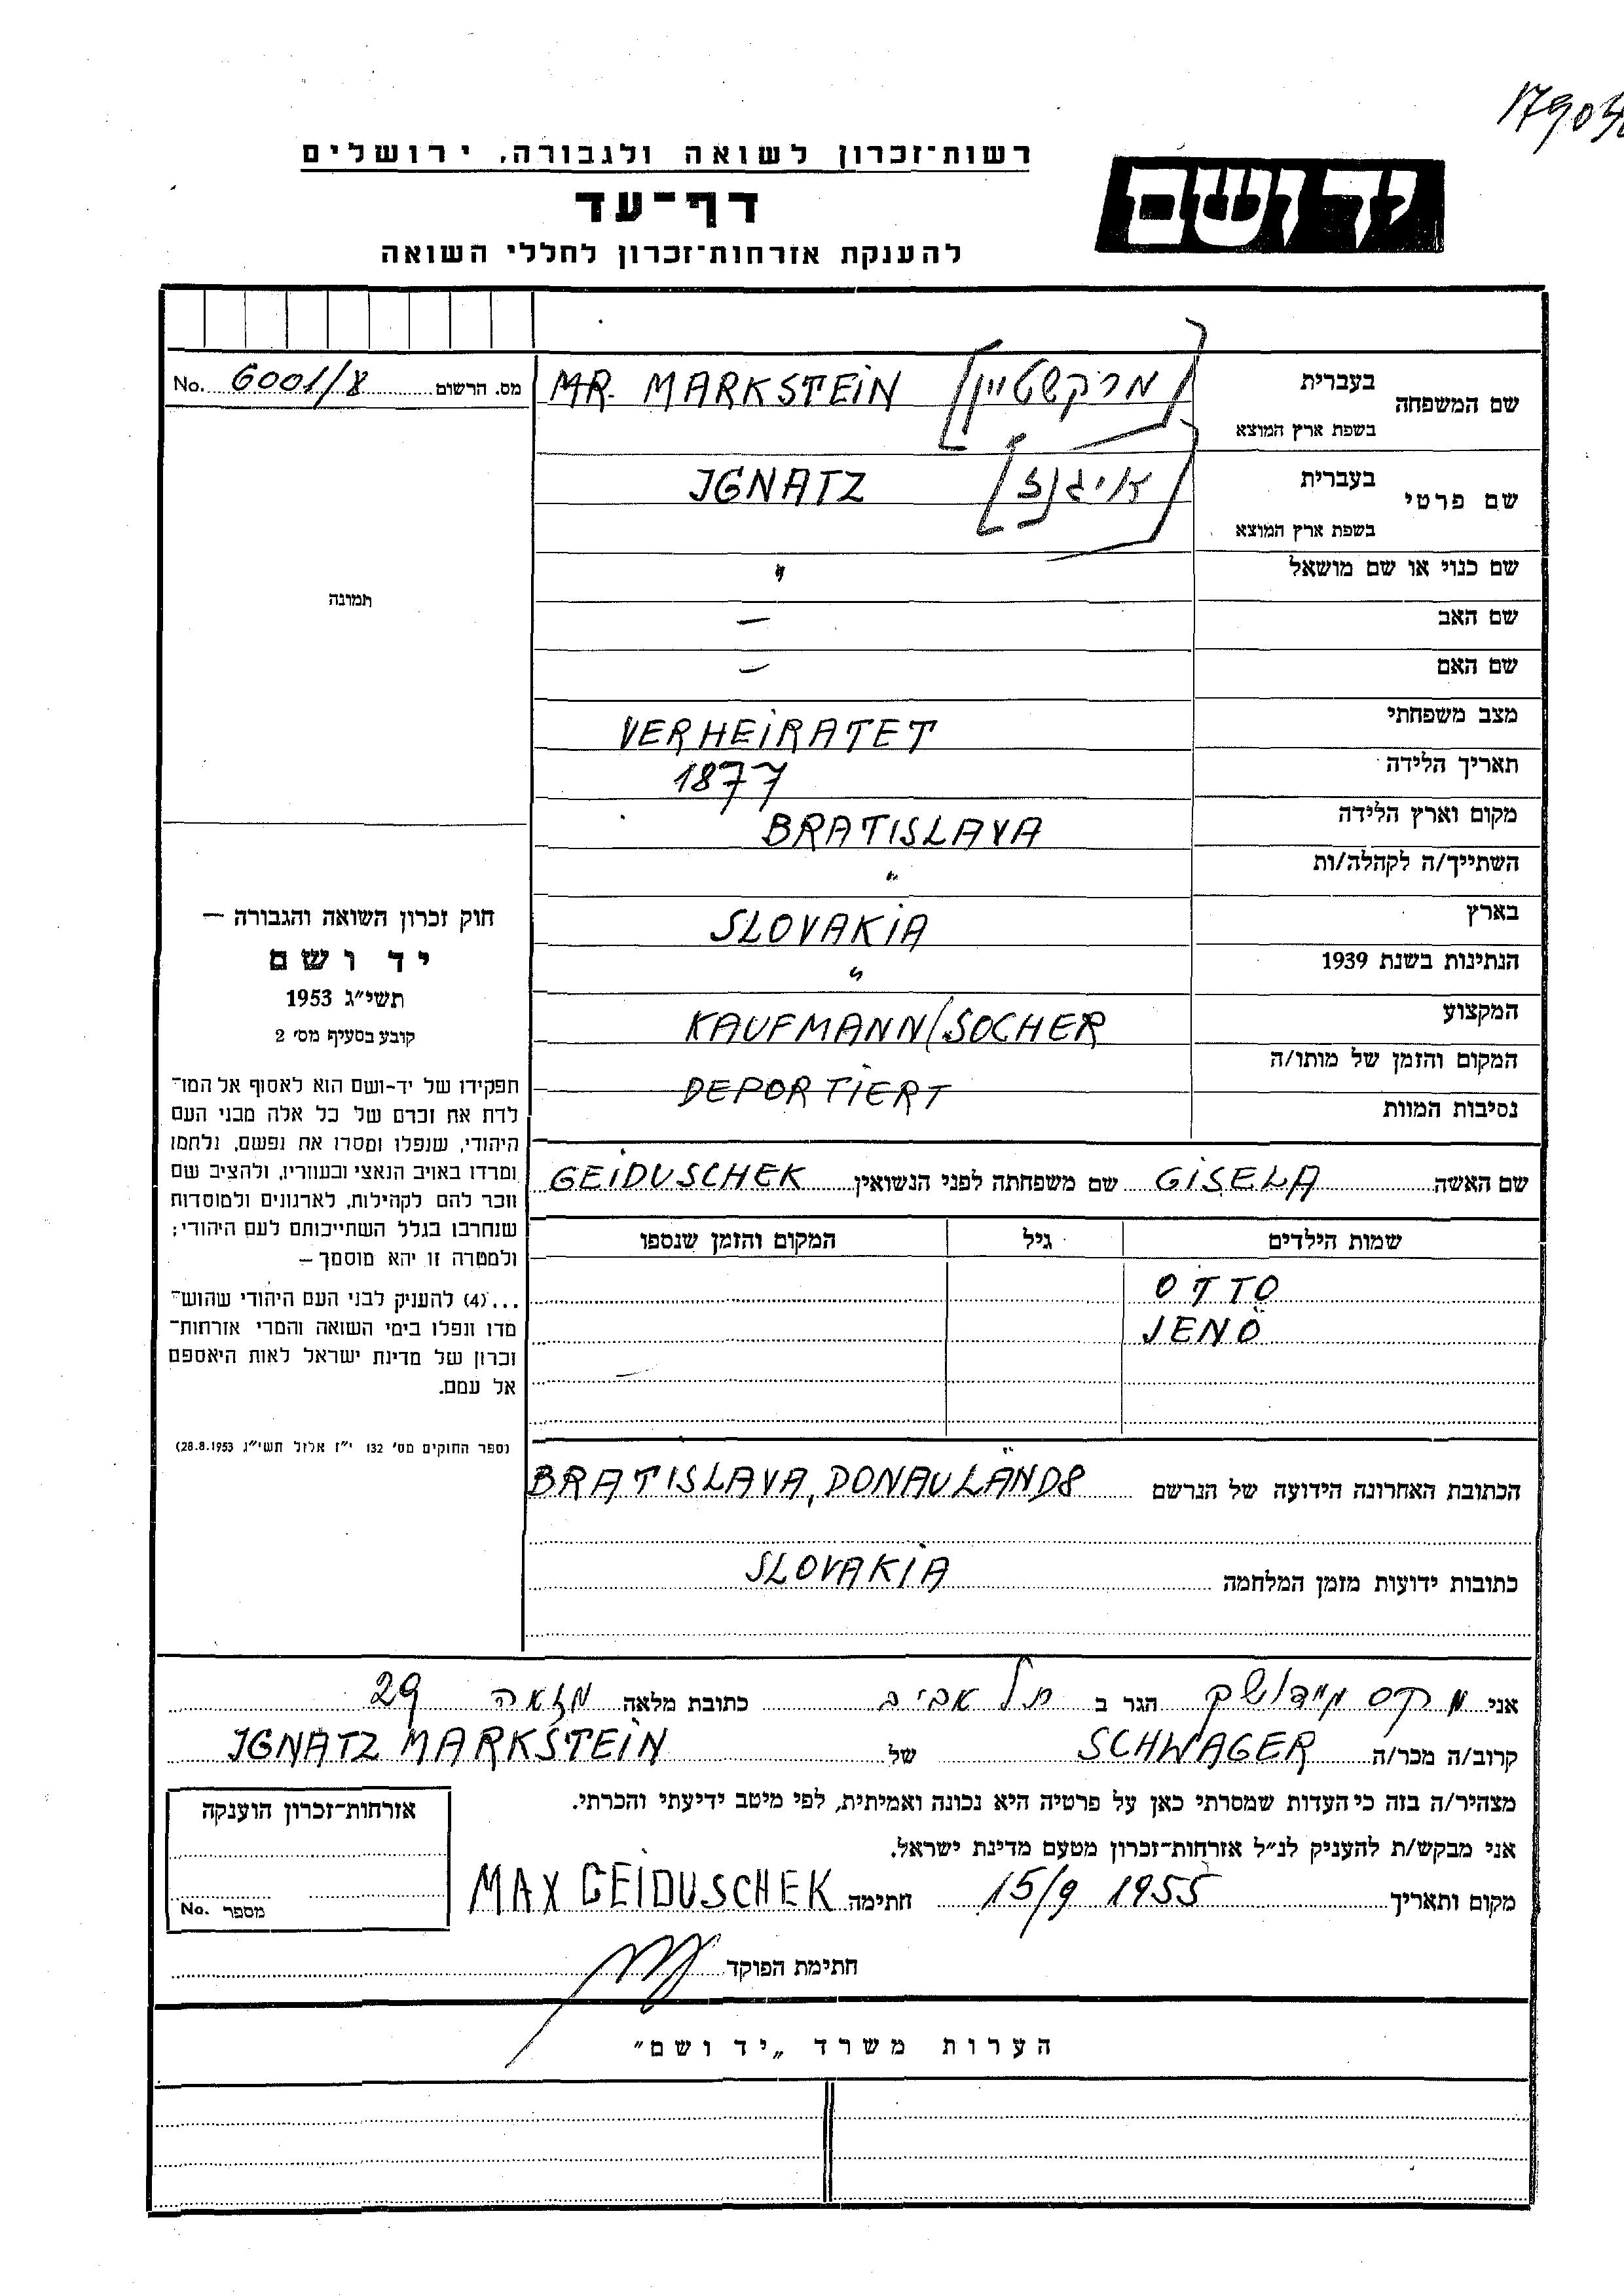 17904
רשות־זכרון לשואה ולגבורה, ירושלים
יד ושם
דף־עד
להענקת אזרחות־זכרון לחללי השואה
No. 6001/8 מס. הרשום
שם המשפחה
בעברית
בשפת ארץ המוצא
MR. MARKSTEIN [מרקשטיין]
שם פרטי
בעברית
בשפת ארץ המוצא
IGNATZ [איגנץ]
שם כנוי או שם מושאל "
שם האב —
שם האם —
מצב משפחתי VERHEIRATET
תאריך הלידה 1877
מקום וארץ הלידה BRATISLAVA
השתייך/ה לקהלה/ות "
בארץ SLOVAKIA
הנתינות בשנת 1939 "
המקצוע KAUFMANN/SOCHER
המקום והזמן של מותו/ה
נסיבות המוות DEPORTIERT
שם האשה GISELA שם משפחתה לפני הנשואין GEIDUSCHEK
שמות הילדים גיל המקום והזמן שנספו
OTTO
JENÖ
הכתובת האחרונה הידועה של הנרשם BRATISLAVA, DONAULÄND8
כתובות ידועות מזמן המלחמה SLOVAKIA
תמונה
חוק זכרון השואה והגבורה —
יד ושם
תשי״ג 1953
קובע בסעיף מס׳ 2
תפקידו של יד־ושם הוא לאסוף אל המו־
לדת את זכרם של כל אלה מבני העם
היהודי, שנפלו ומסרו את נפשם, נלחמו
ומרדו באויב הנאצי ובעוזריו, ולהציב שם
וזכר להם לקהילות, לארגונים ולמוסדות
שנחרבו בגלל השתייכותם לעם היהודי;
ולמטרה זו יהא מוסמך —
...(4) להעניק לבני העם היהודי שהוש־
מדו ונפלו בימי השואה והמרי אזרחות־
זכרון של מדינת ישראל לאות היאספם
אל עמם.
(ספר החוקים מס׳ 132 י״ז אלול תשי״ג 28.8.1953)
אני מקס היגר ב תל אביב כתובת מלאה מזאה 29
קרוב/ה מכר/ה SCHWAGER של IGNATZ MARKSTEIN
מצהיר/ה בזה כי העדות שמסרתי כאן על פרטיה היא נכונה ואמיתית, לפי מיטב ידיעתי והכרתי.
אני מבקש/ת להעניק לנ״ל אזרחות־זכרון מטעם מדינת ישראל.
מקום ותאריך 15/9 1955 חתימה MAX GEIDUSCHEK
חתימת הפוקד
אזרחות־זכרון הוענקה
No. מספר
הערות משרד „יד ושם״